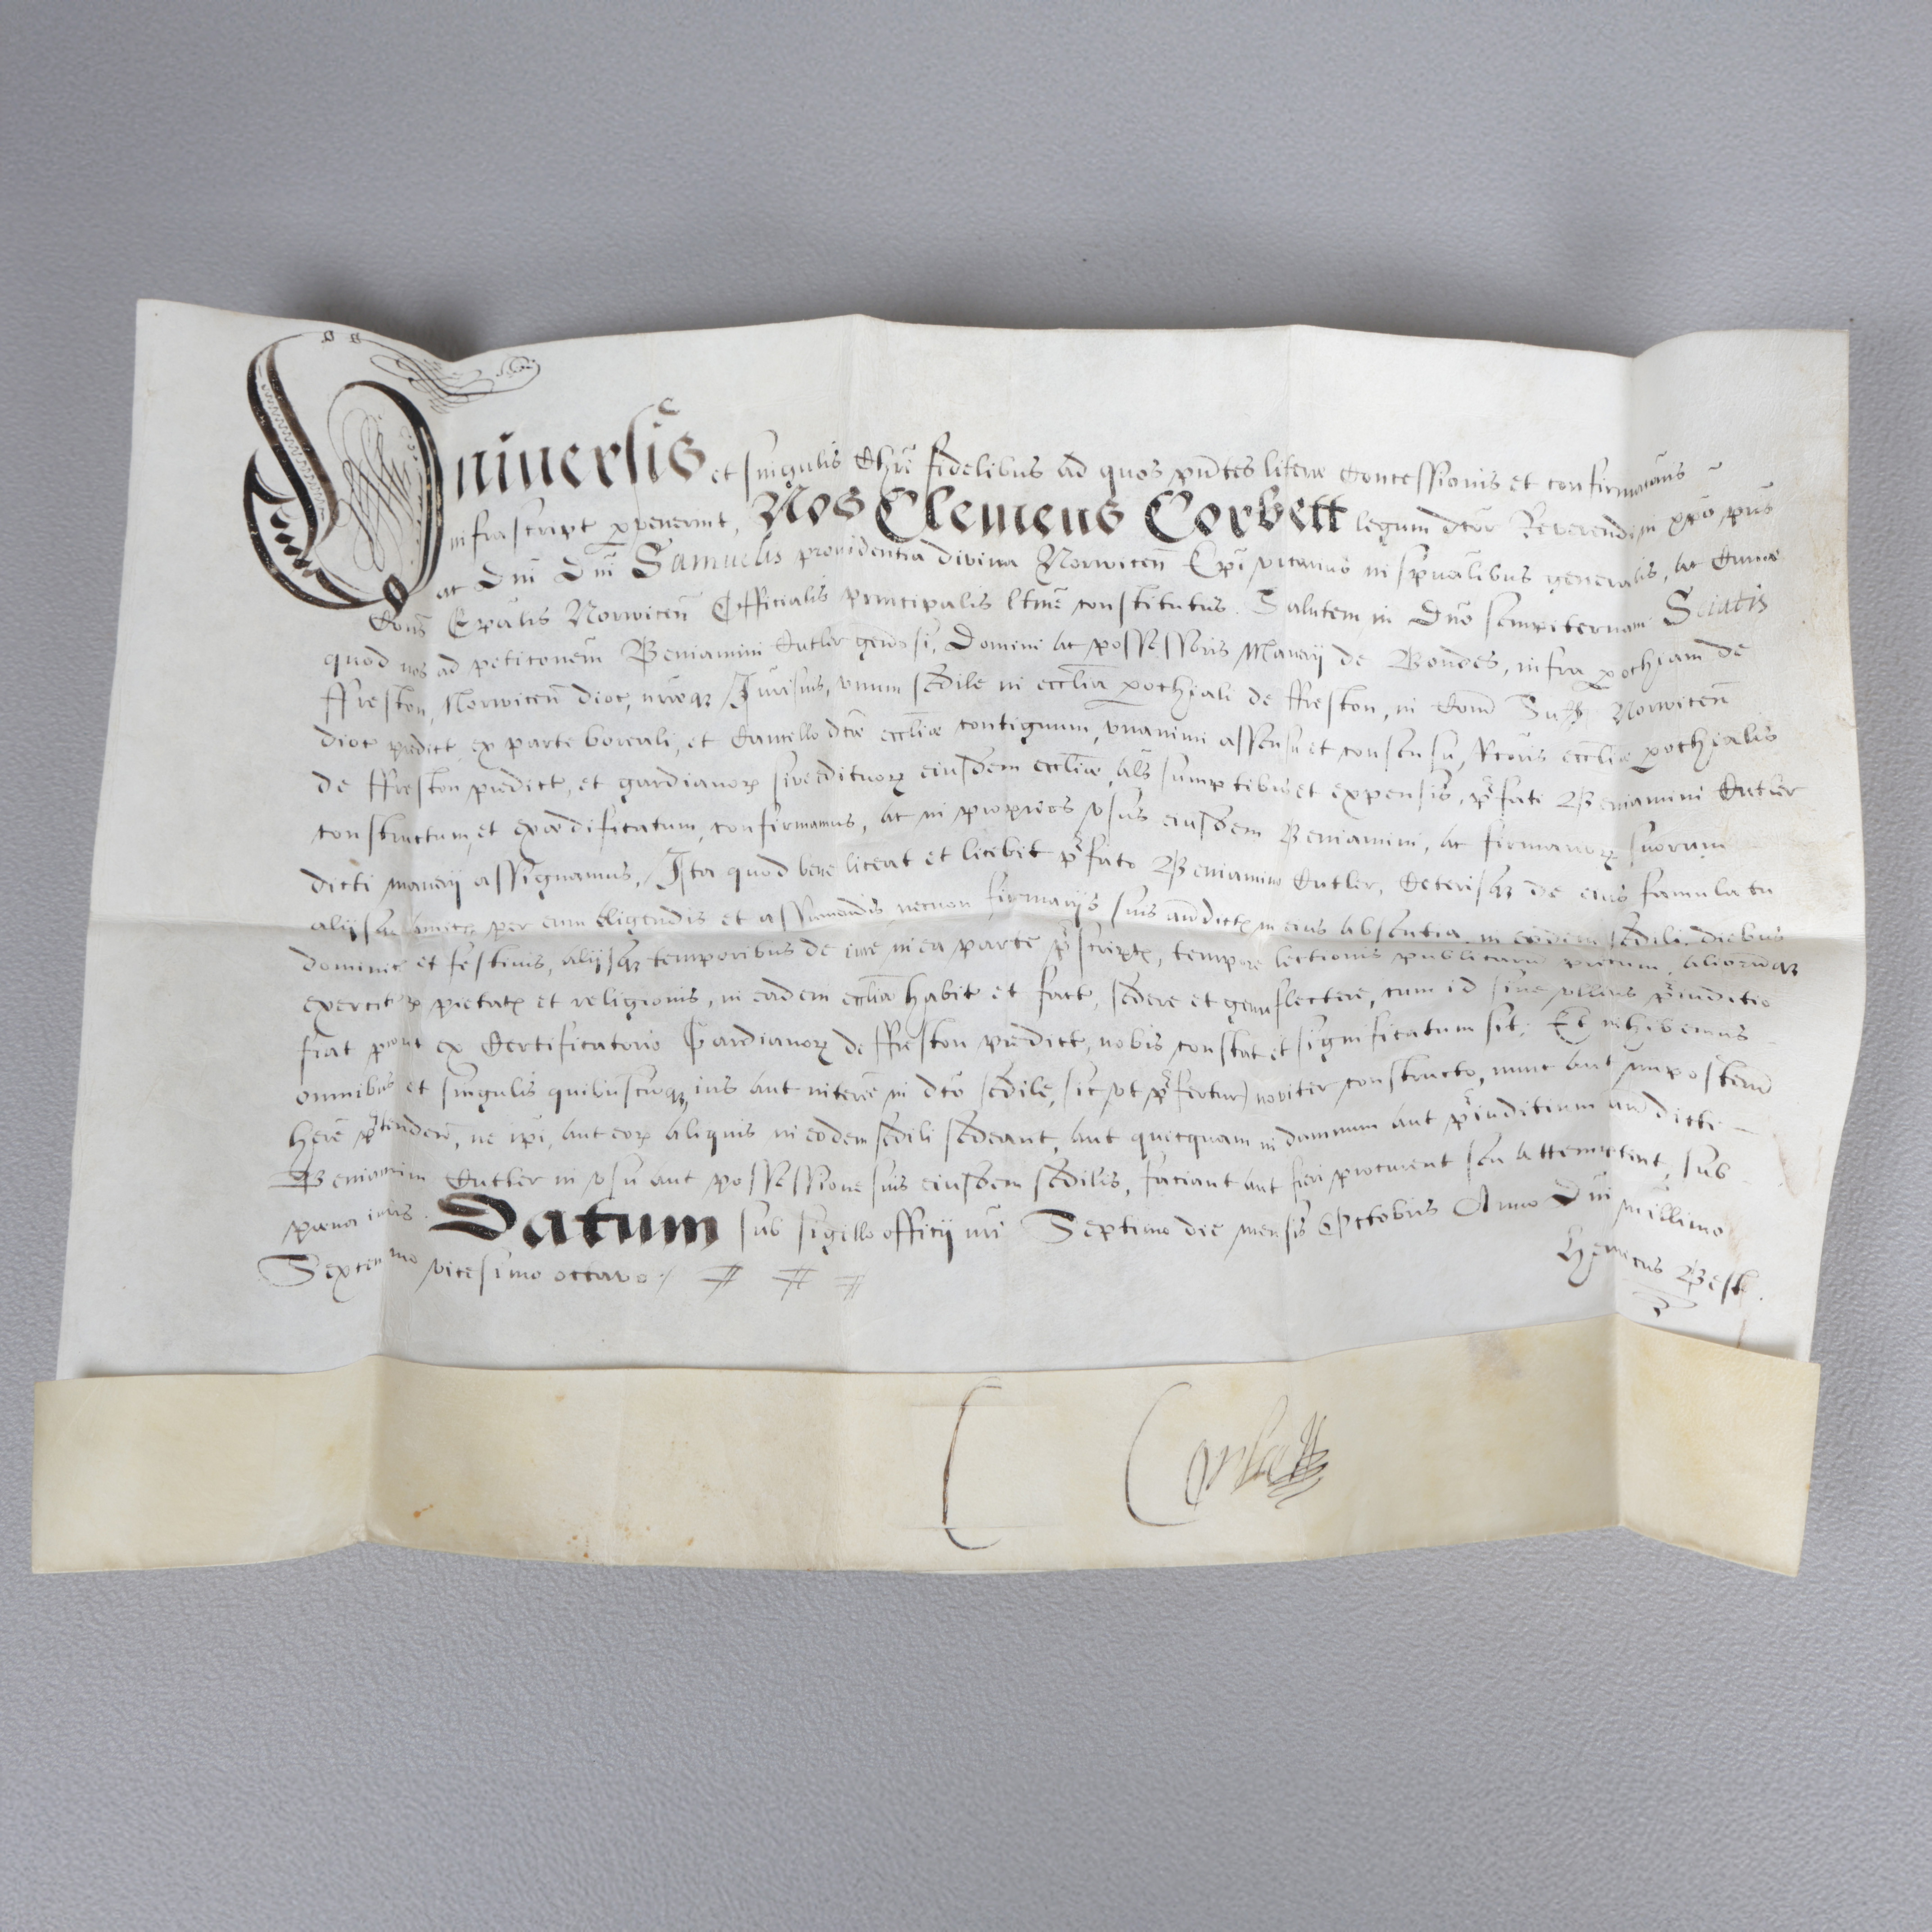 Universis et singulis Chri fidelibus ad quos pñtes literæ Concessionis et confirmacõnis
infrascript pvenerint, Nos Clemens Corbett legum dcõr Reverendi in xpõ pris
ac Dñi Dñi Samuelis providentia divina Norwicen Epi vicarius in spũalibus generalis, ac Curiæ
Cons Epalis Norwicen Officialis principalis ltime constitutus. Salutem in Dño sempiternam Sciatis
quod nos ad peticõnem Beniamini Cutler generosi, Domini ac possessoris Manerij de Bondes, infra pochiam de
ffreston, Norwicen dioc, nræq Jurisdis, unum sedile in ecclia pochiali de ffreston, in Com Suff Norwicen
dioc predict ex parte boreali, et Cancello dcæ eccliæ contiguum, unanimi assensu et consensu, Rcoris eccliæ pochialis
de ffreston predict, et gardianor sive edituor eiusdem eccliæ, als sumptibus et expensis, p̃fati Beniamini Cutler
constructum, et exædificatum, confirmamus, ac in proprios usus eiusdem Beniamini, ac firmarior suorum
dicti manerij assignamus, Ita quod bene liceat et licebit p̃fato Beniamino Cutler, Ceterisq de eius famulatu
alijsq amicis per eum eligendis et assumendis necnon firmarijs suis antedict in eius absentia in eodem sedili, diebus
dominic et festivis, alijsq temporibus de iure in ea parte p̃script, tempore lectionis publicarum precum, aliorumq
exercitior pietatis et religionis, in eadem ecclia habit et fact, sedere et genuflectere, cum id sine ullius p̃iudicio
fiat prout ex Certificatorio Gardianor de ffreston predict, nobis constat et significatum sit; Et inhibemus
omnibus et singulis quibuscumq, ius aut interẽe in dco sedile, (sic ut p̃fertur) noviter constructo, nunc aut imposterum
here p̃tenderit, ne ipi, aut eor aliquis in eodem sedili sedeant, aut quicquam in damnum aut p̃iudicium an dicti
Beniamini Cutler in usu aut possessione suis eiusdem sedilis, faciant aut fieri procurent seu attemptent, sub
pæna iuris. Datum sub sigillo officij nri Septimo die mensis Octobris Anno Dñi millimo
Sexcenmo vicesimo octavo./
Henricus Best.
C Corbett